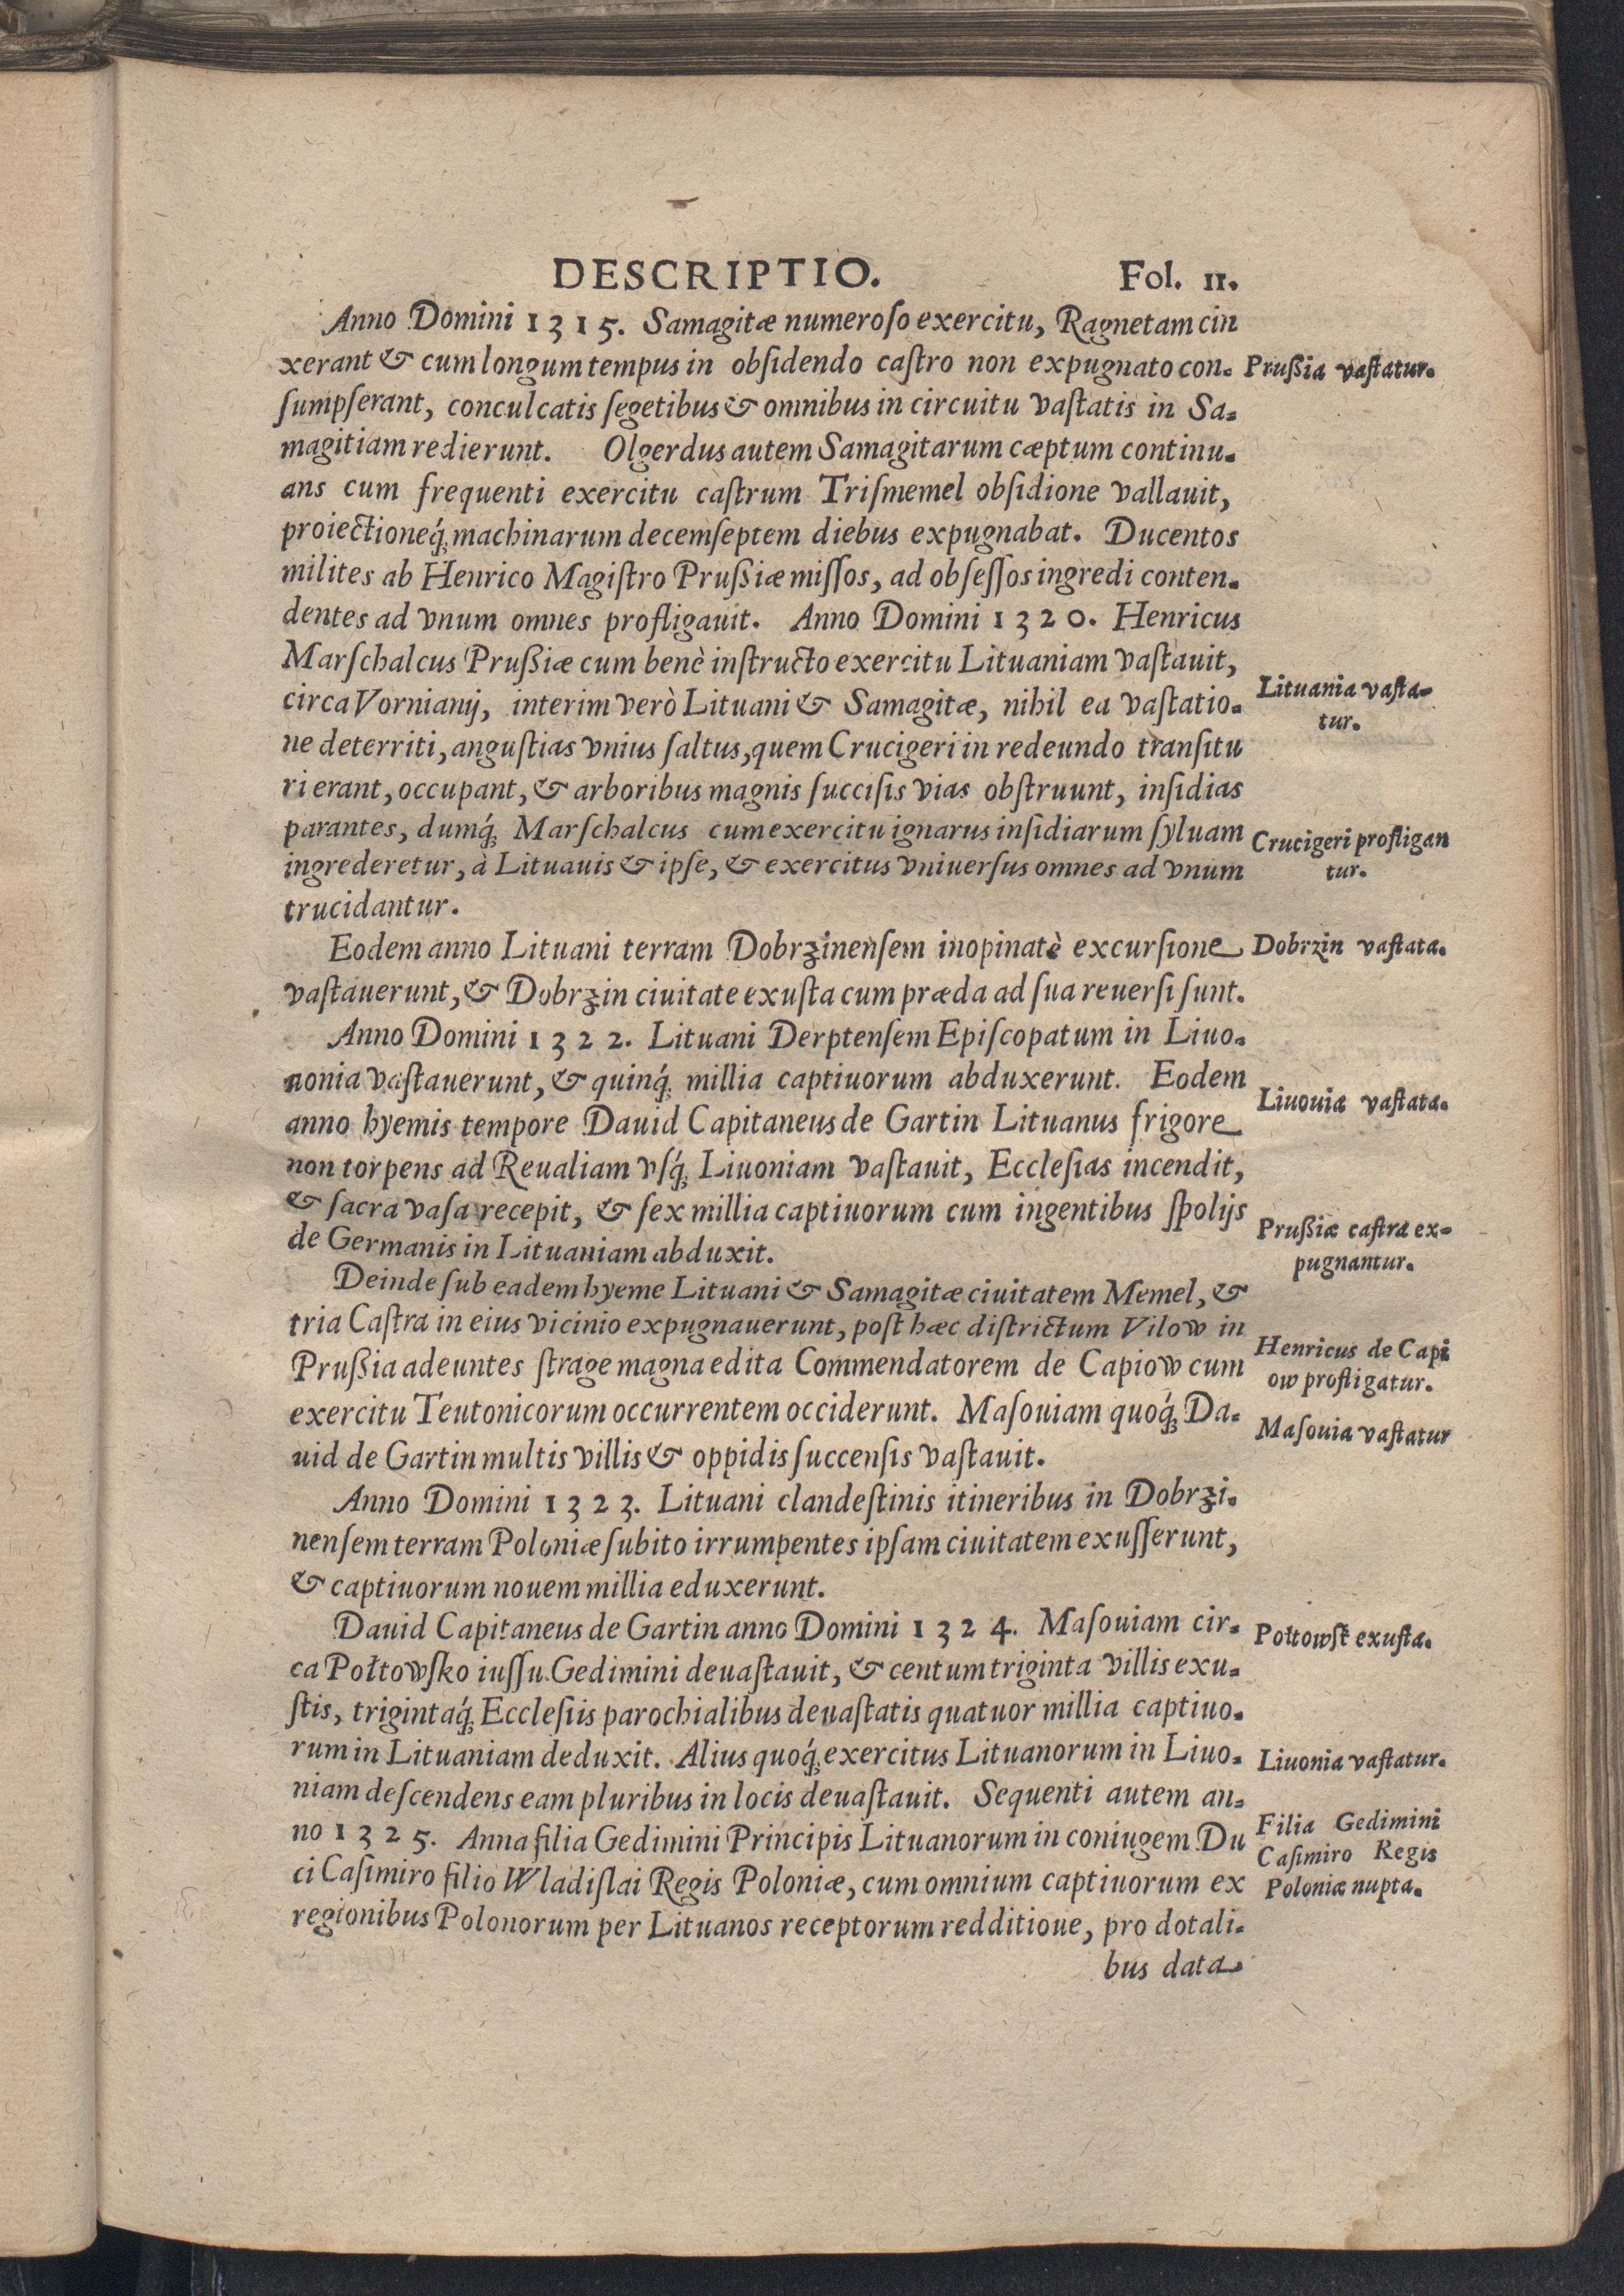 DESCRIPTIO. Fol. 11.
Anno Domini 1315. Samagitæ numeroſo exercitu, Ragnetam cin
xerant & cum longum tempus in obſidendo caſtro non expugnato con-
Prußia vaſtatur.
ſumpſerant, conculcatis ſegetibus & omnibus in circuitu vaſtatis in Sa-
magitiam redierunt. Olgerdus autem Samagitarum cæptum continu-
ans cum frequenti exercitu caſtrum Triſmemel obſidione vallauit,
proiectioneq́; machinarum decemſeptem diebus expugnabat. Ducentos
milites ab Henrico Magiſtro Prußiæ miſſos, ad obſeſſos ingredi conten-
dentes ad vnum omnes profligauit. Anno Domini 1320. Henricus
Marſchalcus Prußiæ cum benè inſtructo exercitu Lituaniam vaſtauit,
circa Vornianij, interim verò Lituani & Samagitæ, nihil ea vaſtatio-
Lituania vaſta-
tur.
ne deterriti, anguſtias vnius ſaltus, quem Crucigeri in redeundo tranſitu
ri erant, occupant, & arboribus magnis ſucciſis vias obſtruunt, inſidias
parantes, dumq́; Marſchalcus cum exercitu ignarus inſidiarum ſyluam
Crucigeri profligan
tur.
ingrederetur, à Lituauis & ipſe, & exercitus vniuerſus omnes ad vnum
trucidantur.
Eodem anno Lituani terram Dobrzinenſem inopinatè excurſione
Dobrzin vaſtata.
vaſtauerunt, & Dobrzin ciuitate exuſta cum præda ad ſua reuerſi ſunt.
Anno Domini 1322. Lituani Derptenſem Epiſcopatum in Liuo-
nonia vaſtauerunt, & quinq́; millia captiuorum abduxerunt. Eodem
Liuouia vaſtata.
anno hyemis tempore Dauid Capitaneus de Gartin Lituanus frigore
non torpens ad Reualiam vſq́; Liuoniam vaſtauit, Eccleſias incendit,
& ſacra vaſa recepit, & ſex millia captiuorum cum ingentibus ſpolijs
Prußiæ caſtra ex-
pugnantur.
de Germanis in Lituaniam abduxit.
Deinde ſub eadem hyeme Lituani & Samagitæ ciuitatem Memel, &
tria Caſtra in eius vicinio expugnauerunt, poſt hæc diſtrictum Vilow in
Prußia adeuntes ſtrage magna edita Commendatorem de Capiow cum
Henricus de Capi
ow profligatur.
exercitu Teutonicorum occurrentem occiderunt. Maſouiam quoq́; Da-
Maſouia vaſtatur
uid de Gartin multis villis & oppidis ſuccenſis vaſtauit.
Anno Domini 1323. Lituani clandeſtinis itineribus in Dobrzi-
nenſem terram Poloniæ ſubito irrumpentes ipſam ciuitatem exuſſerunt,
& captiuorum nouem millia eduxerunt.
Dauid Capitaneus de Gartin anno Domini 1324. Maſouiam cir-
Połtowſk exuſta.
ca Połtowſko iuſſu Gedimini deuaſtauit, & centum triginta villis exu-
ſtis, trigintaq́; Eccleſiis parochialibus deuaſtatis quatuor millia captiuo-
rum in Lituaniam deduxit. Alius quoq́; exercitus Lituanorum in Liuo-
Liuonia vaſtatur.
niam deſcendens eam pluribus in locis deuaſtauit. Sequenti autem an-
no 1325. Anna filia Gedimini Principis Lituanorum in coniugem Du
Filia Gedimini
Caſimiro Regis
Poloniæ nupta.
ci Caſimiro filio Wladiſlai Regis Poloniæ, cum omnium captiuorum ex
regionibus Polonorum per Lituanos receptorum redditioue, pro dotali-
bus data